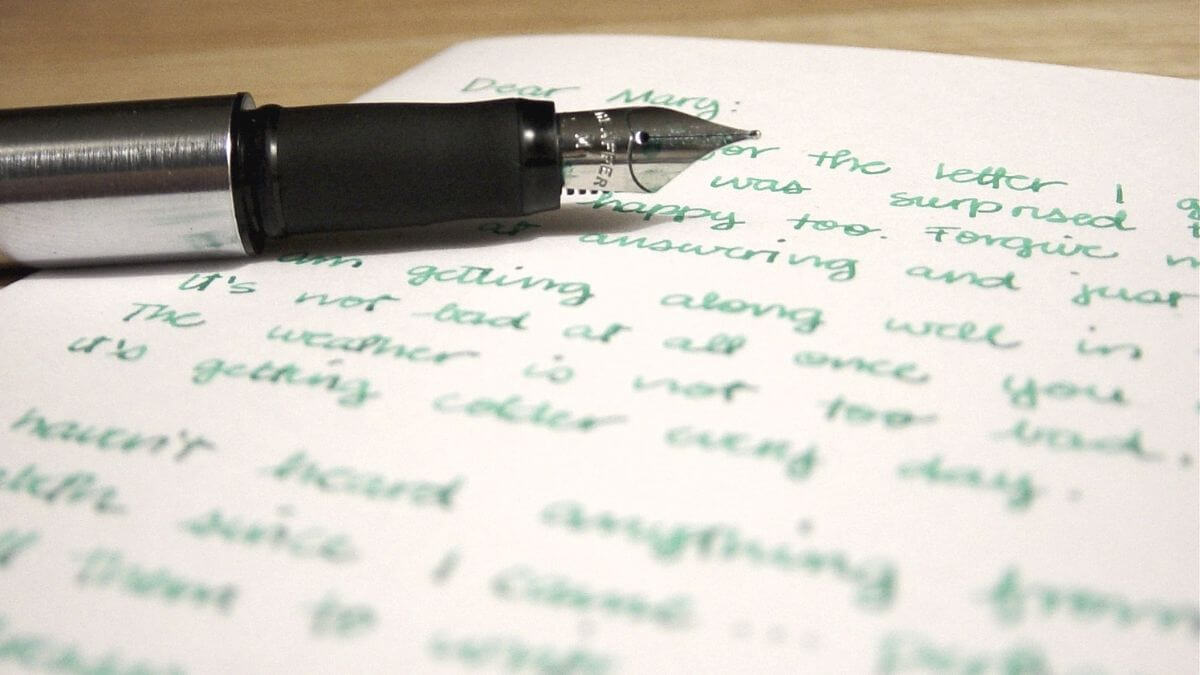 Dear Mary:
SHEAFFER
M
for the letter I
was surprised
happy too. Forgive
at answering and just
am getting along well in
it's not bad at all once you
The weather is not too bad.
it's getting colder every day.
haven't heard anything from
since I came...
them to write